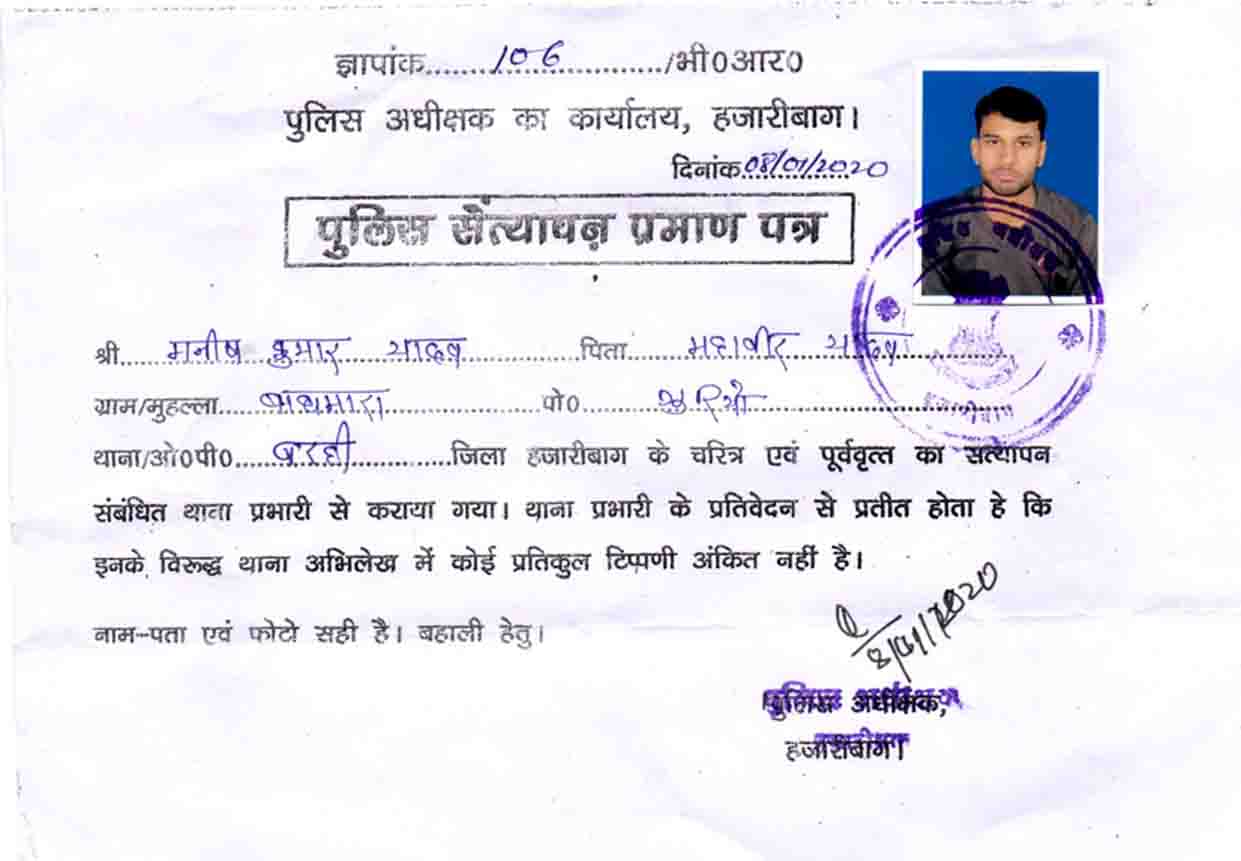 ज्ञापांक.......106......./भी0आर0
पुलिस अधीक्षक का कार्यालय, हजारीबाग।
दिनांक 08/01/2020
पुलिस सत्यापन प्रमाण पत्र
श्री....मनीष कुमार यादव....पिता....महावीर यादव....
ग्राम/मुहल्ला.... ....पो0.... ....
थाना/ओ0पी0....बरही....जिला हजारीबाग के चरित्र एवं पूर्ववृत्त का सत्यापन
संबंधित थाना प्रभारी से कराया गया। थाना प्रभारी के प्रतिवेदन से प्रतीत होता हे कि
इनके विरूद्ध थाना अभिलेख में कोई प्रतिकुल टिप्पणी अंकित नहीं है।
नाम-पता एवं फोटो सही है। बहाली हेतु।
8/01/2020
पुलिस अधीक्षक,
हजारीबाग।
पुलिस अधीक्षक
हजारीबाग